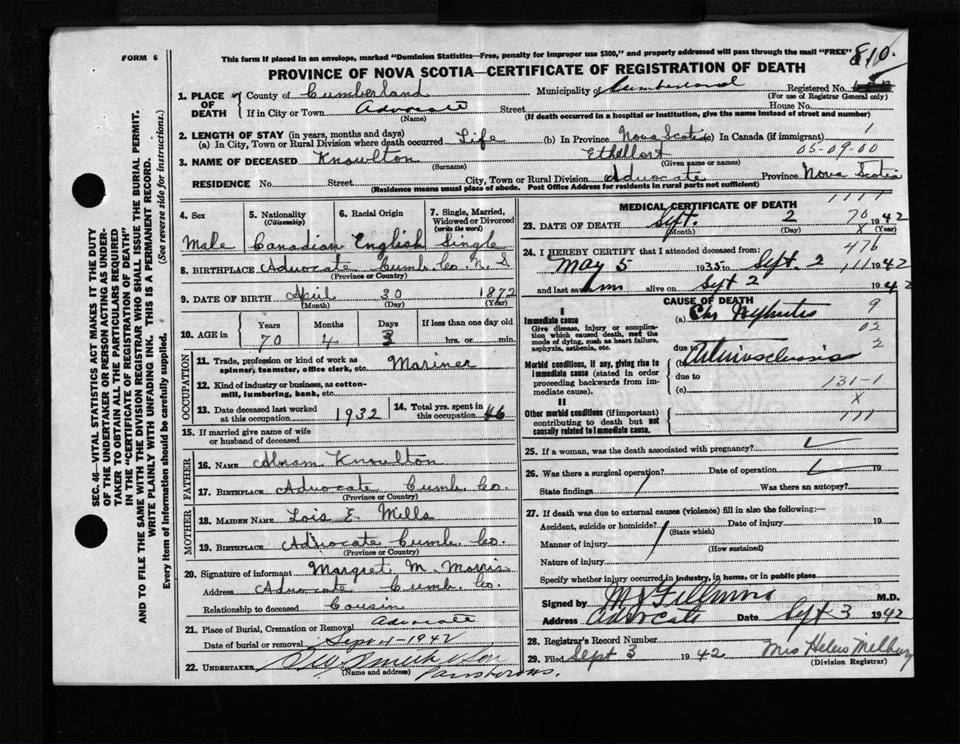 FORM 6
This form if placed in an envelope, marked "Dominion Statistics—Free, penalty for improper use $300," and properly addressed will pass through the mail "FREE"
810.
PROVINCE OF NOVA SCOTIA—CERTIFICATE OF REGISTRATION OF DEATH
SEC. 46—VITAL STATISTICS ACT MAKES IT THE DUTY
OF THE UNDERTAKER OR PERSON ACTING AS UNDER-
TAKER TO OBTAIN ALL THE PARTICULARS REQUIRED
IN THE "CERTIFICATE OF REGISTRATION OF DEATH"
AND TO FILE THE SAME WITH THE DIVISION REGISTRAR WHO SHALL ISSUE THE BURIAL PERMIT.
WRITE PLAINLY WITH UNFADING INK. THIS IS A PERMANENT RECORD.
Every item of information should be carefully supplied. (See reverse side for instructions.)
1. PLACE OF DEATH
County of Cumberland Municipality of Cumberland Registered No.
(For use of Registrar General only)
If in City or Town Advocate Street House No.
(Name) (If death occurred in a hospital or institution, give the name instead of street and number)
2. LENGTH OF STAY (in years, months and days)
(a) In City, Town or Rural Division where death occurred Life (b) In Province Nova Scotia (c) In Canada (if immigrant) 1
3. NAME OF DECEASED Knowlton Ethelbert 05-09-00
(Surname) (Given name or names)
RESIDENCE No. Street City, Town or Rural Division Advocate Province Nova Scotia
(Residence means usual place of abode. Post Office Address for residents in rural parts not sufficient)
4. Sex Male
5. Nationality (Citizenship) Canadian
6. Racial Origin English
7. Single, Married, Widowed or Divorced (write the word) Single
8. BIRTHPLACE Advocate Cumb. Co. N. S
(Province or Country)
9. DATE OF BIRTH April 30 1872
(Month) (Day) (Year)
10. AGE in Years Months Days If less than one day old
70 4 hrs. or min.
OCCUPATION
11. Trade, profession or kind of work as spinner, teamster, office clerk, etc. Mariner
12. Kind of industry or business, as cotton-mill, lumbering, bank, etc.
13. Date deceased last worked at this occupation 1932
14. Total yrs. spent in this occupation 46
15. If married give name of wife or husband of deceased
FATHER
16. NAME Abram Knowlton
17. BIRTHPLACE Advocate Cumb. Co.
(Province or Country)
MOTHER
18. MAIDEN NAME Lois E. Mills
19. BIRTHPLACE Advocate Cumb. Co.
(Province or Country)
20. Signature of informant Margret M. Morris
Address Advocate Cumb. Co.
Relationship to deceased Cousin
21. Place of Burial, Cremation or Removal Advocate
Date of burial or removal Sept 4-1942
22. UNDERTAKER
(Name and address)
MEDICAL CERTIFICATE OF DEATH
1111
23. DATE OF DEATH Sept. 2 70 1942
(Month) (Day) X (Year)
24. I HEREBY CERTIFY that I attended deceased from: 476
May 5 1935 to Sept. 2 111 1942
and last saw him alive on Sept 2 1942
CAUSE OF DEATH
I
Immediate cause (a) Chr Nephritis 9
Give disease, injury or complication which caused death, not the mode of dying, such as heart failure, asphyxia, asthenia, etc.
due to 02
2
Morbid conditions, if any, giving rise to immediate cause (stated in order proceeding backwards from immediate cause). (b) Arteriosclerosis
due to
(c) 131-1
II X
Other morbid conditions (if important) contributing to death but not causally related to immediate cause. 111
25. If a woman, was the death associated with pregnancy?
26. Was there a surgical operation? Date of operation 19
State findings Was there an autopsy?
27. If death was due to external causes (violence) fill in also the following:—
Accident, suicide or homicide? Date of injury 19
(State which)
Manner of injury
(How sustained)
Nature of injury
Specify whether injury occurred in industry, in home, or in public place
Signed by M.D.
Address Advocate Date Sept 3 1942
28. Registrar's Record Number
29. Filed Sept 3 1942 Mrs Helen
(Division Registrar)